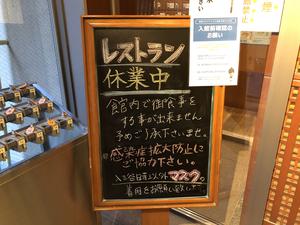 レストラン
休業中
館内で御食事を
する事が出来ません
予めご了承下さいませ。
感染症拡大防止に
ご協力下さい。
入浴時以外マスク。
着用をお願い致します
入館前確認の
お願い